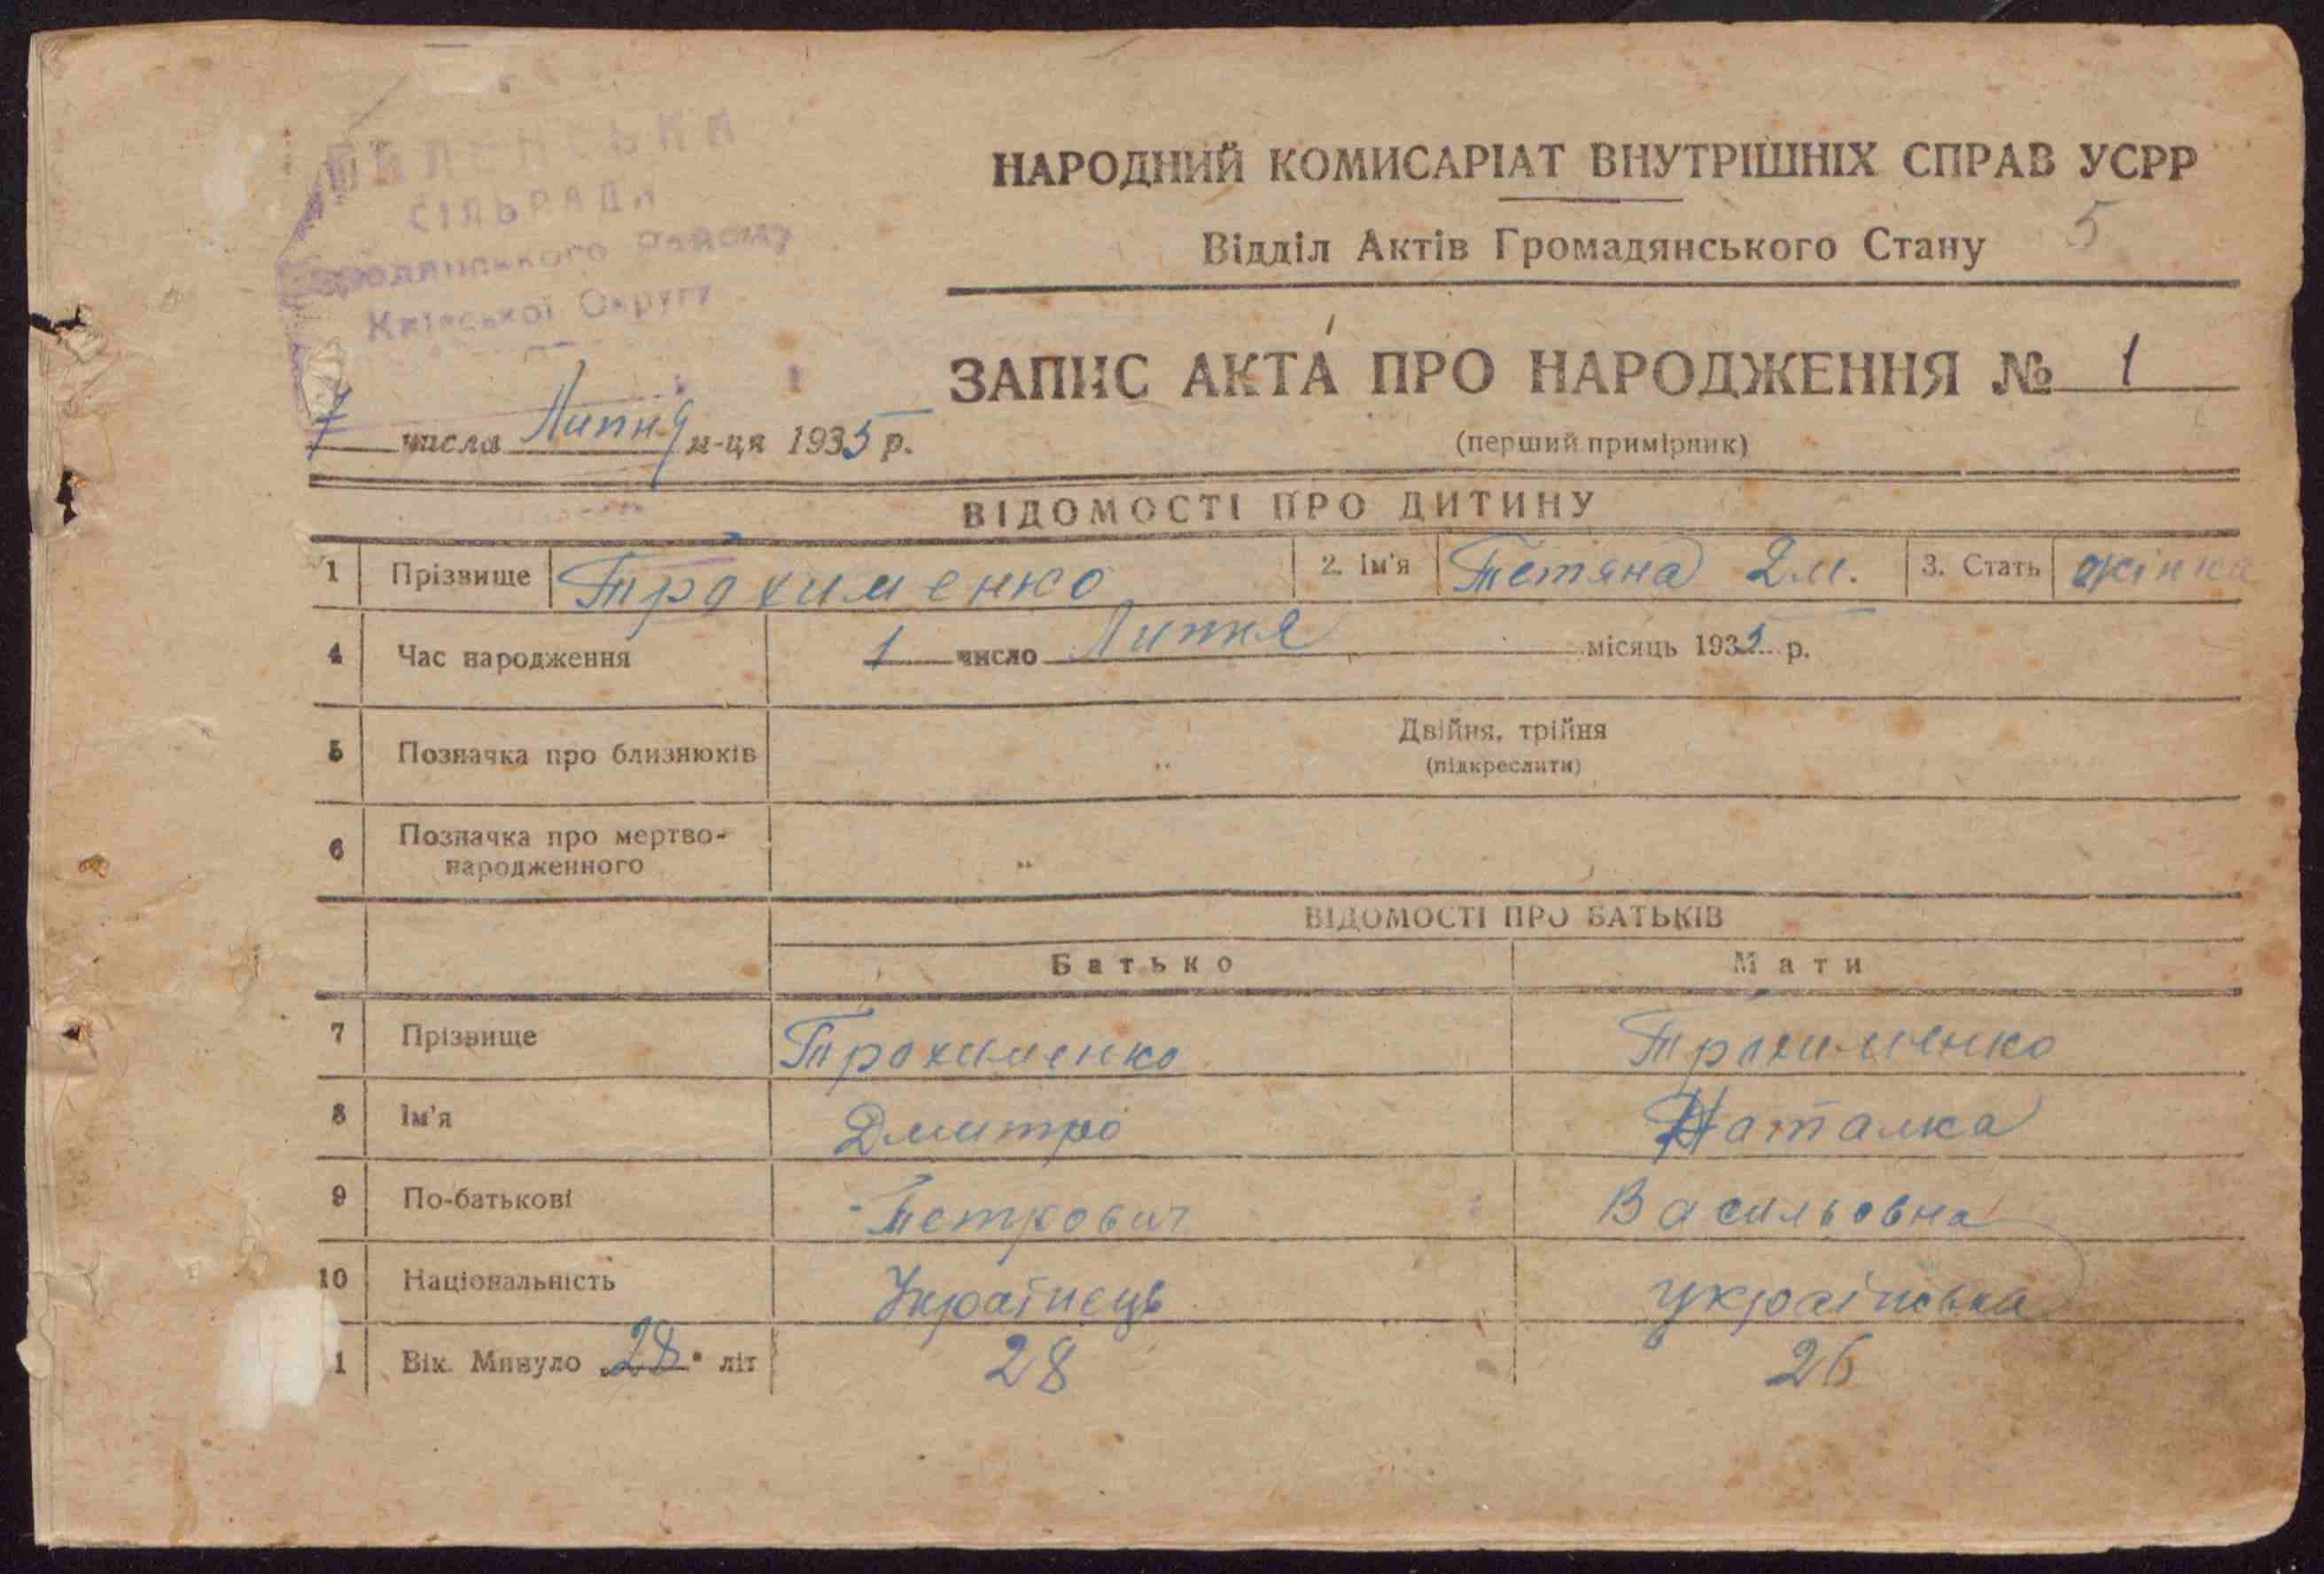 СІЛЬРАДИ
Району
Київської Округи
НАРОДНИЙ КОМИСАРІАТ ВНУТРІШНІХ СПРАВ УСРР
Відділ Актів Громадянського Стану 5
ЗАПИС АКТА ПРО НАРОДЖЕННЯ № 1
(перший примірник)
7 числа Липня м-ця 1935 р.
ВІДОМОСТІ ПРО ДИТИНУ
1 Прізвище Трохименко 2. Ім'я Тетяна Дм. 3. Стать жінка
4 Час народження 1 число Липня місяць 1935 р.
5 Позначка про близнюків Двійня, трійня
(підкреслити)
6 Позначка про мертво-
народженного
ВІДОМОСТІ ПРО БАТЬКІВ
Батько Мати
7 Прізвище Трохименко Трохименко
8 Ім'я Дмитро Наталка
9 По-батькові Петрович Васильовна
10 Національність Українець українська
1 Вік. Минуло „28" літ 28 26